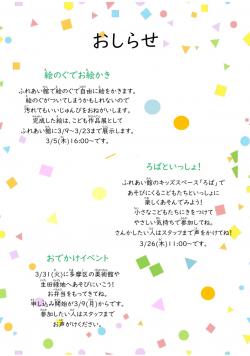 おしらせ
絵のぐでお絵かき
ふれあい館で絵のぐで自由に絵をかきます。
絵のぐがついてしまうかもしれないので
汚れてもいいじゅんびをおねがいします。
完成した絵は、こども作品展として
ふれあい館に3/9～3/23まで展示します。
3/5(木)16:00～です。
ろばといっしょ!
ふれあい館のキッズスペース「ろば」で
あそびにくるこどもたちといっしょに
楽しくあそんでみよう!
小さなこどもたちにきをつけて
やさしい気持ちで参加してね。
さんかしたい人はスタッフまで声をかけてね!
3/26(木)11:00～です。
おでかけイベント
3/31(火)に多摩区の美術館や
生田緑地へあそびにいこう!
お弁当をもってきてね。
申し込み開始が3/9(月)からです。
参加したい人はスタッフまで
お声がけください。